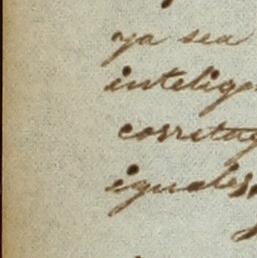 ya sea
intelig
corretag
iguales,